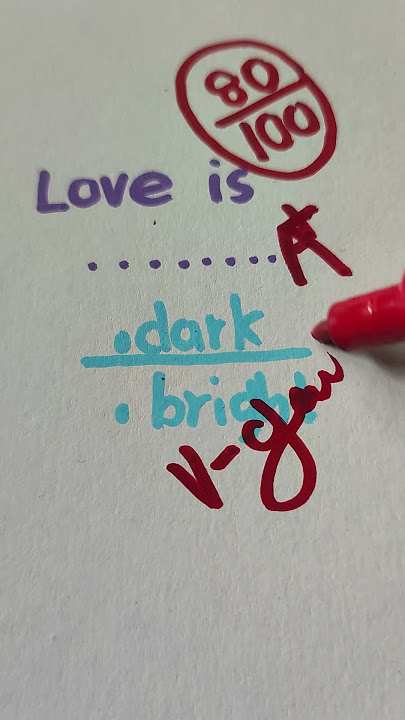 80
100
Love is
........ A+
.dark
. bright
V-